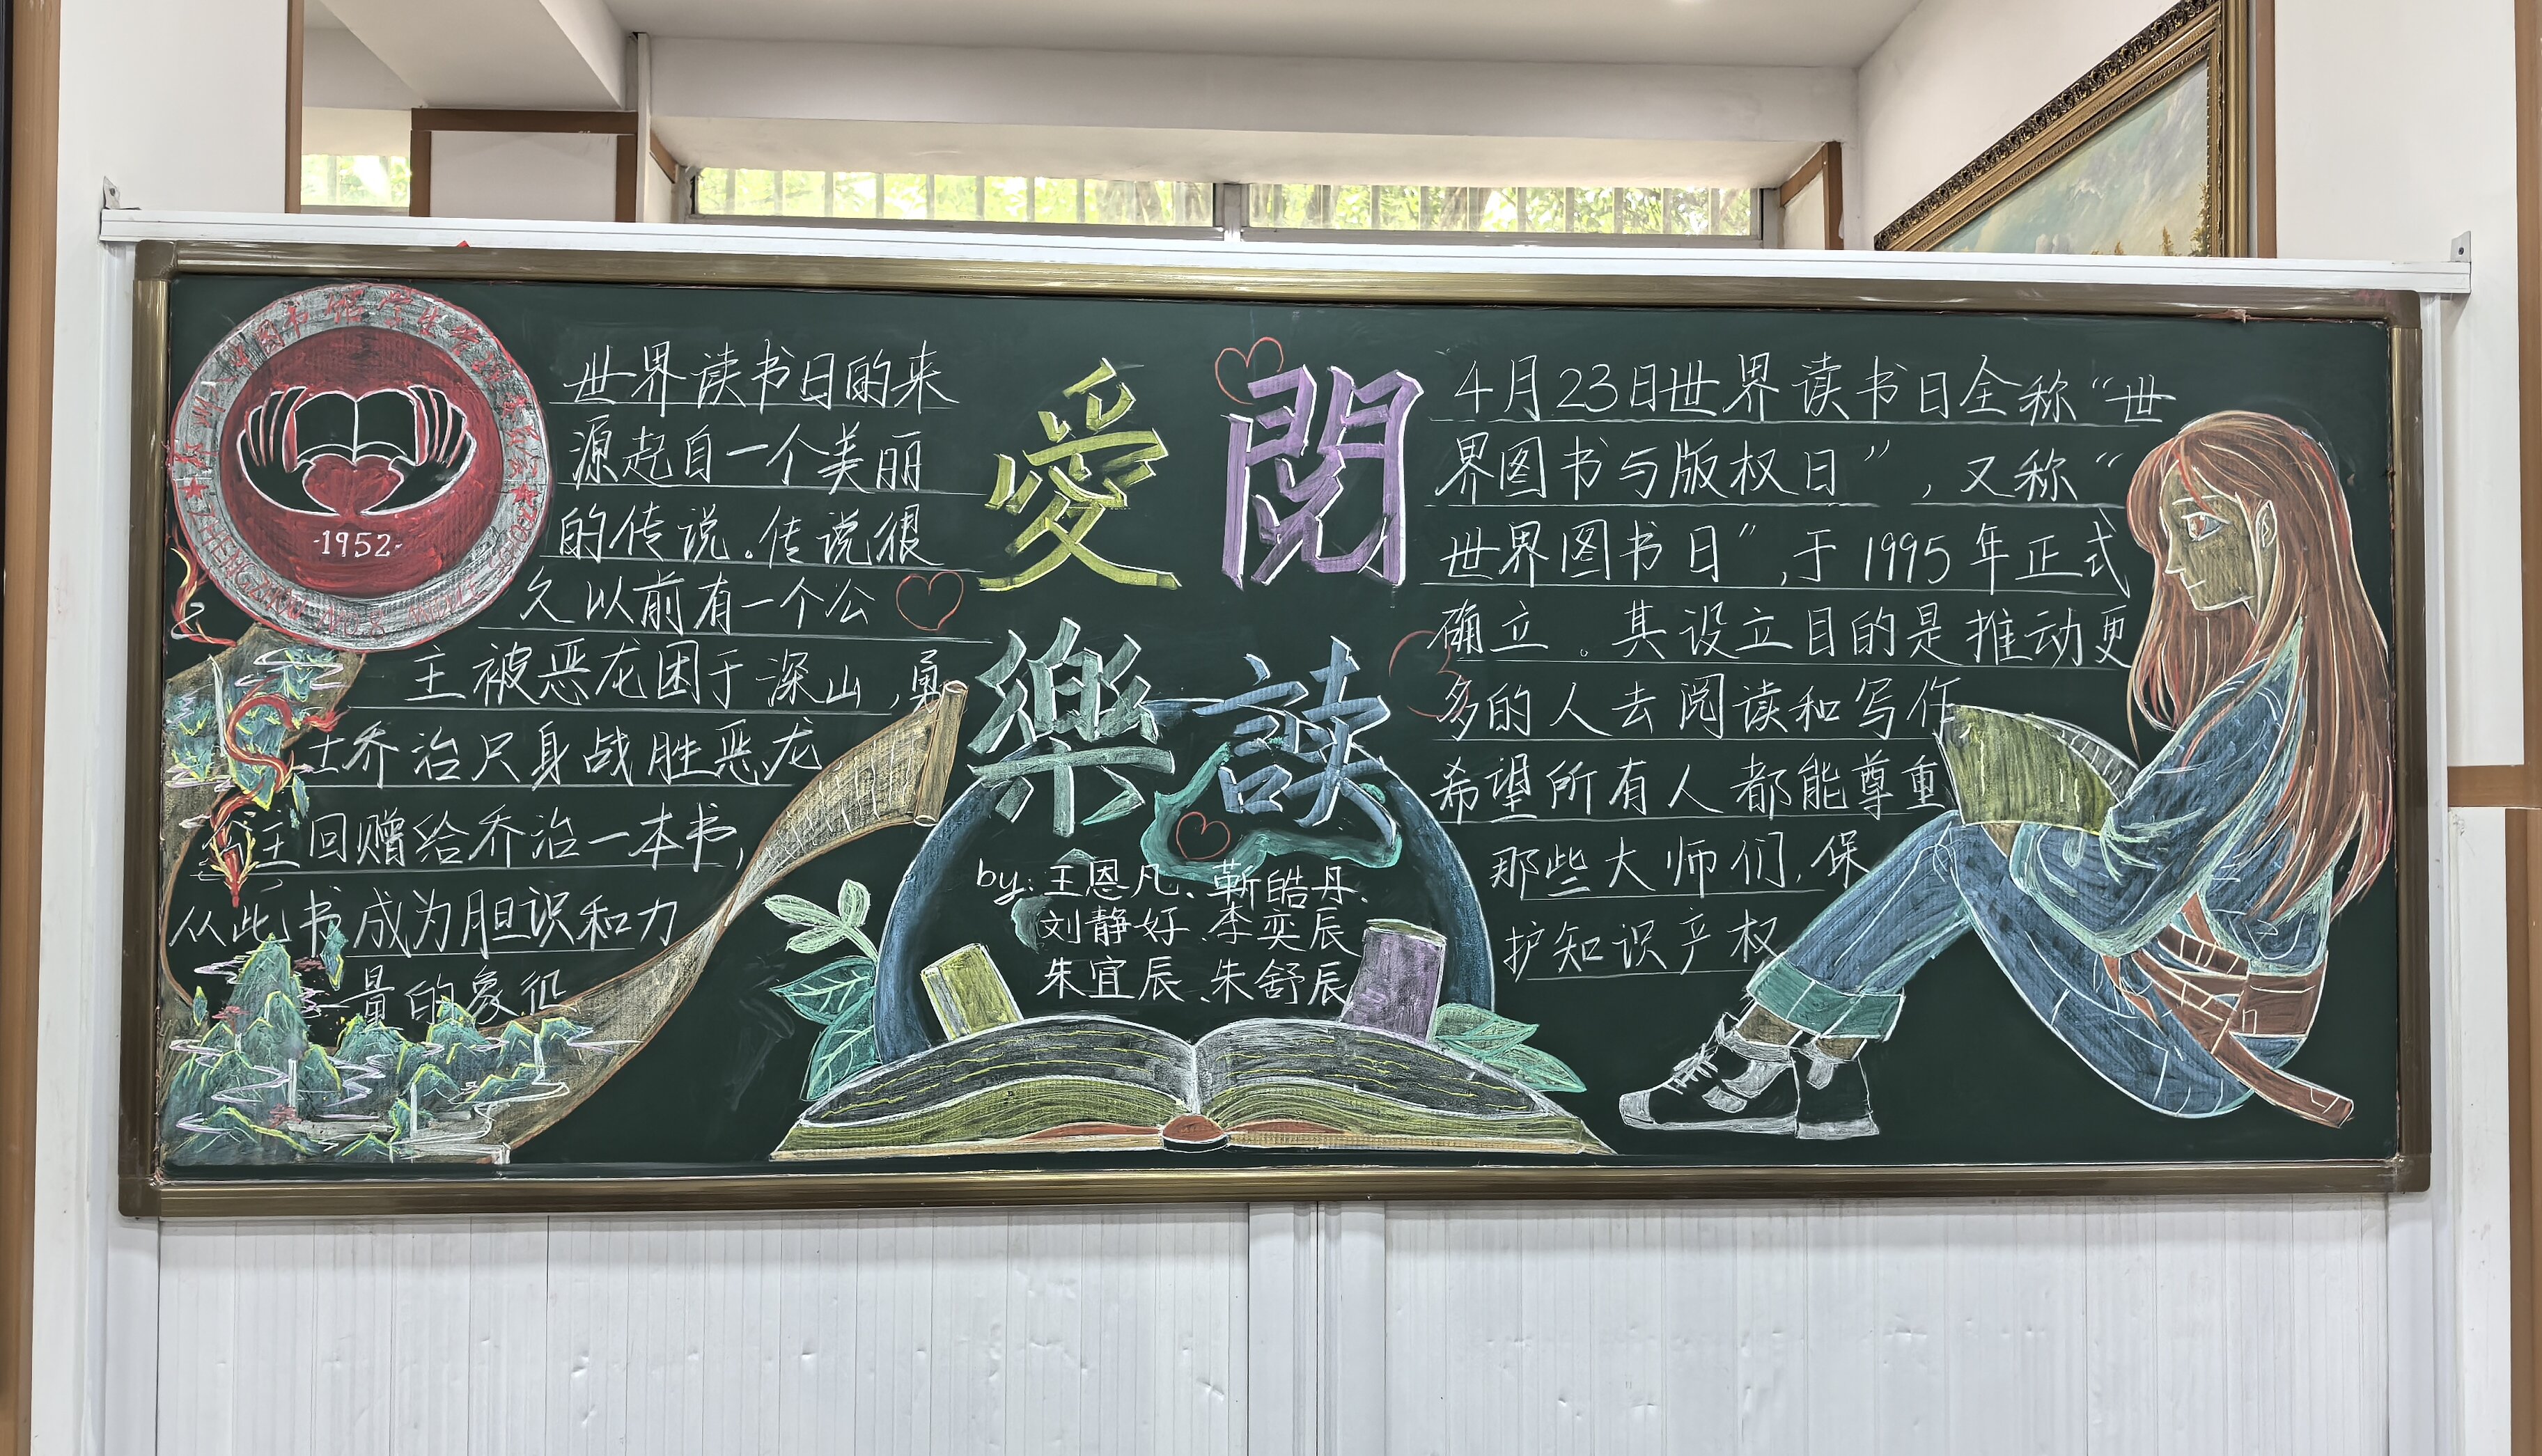 -1952-
世界读书日的来
源起自一个美丽
的传说。传说很
久以前有一个公
主被恶龙困于深山,勇
士乔治只身战胜恶龙
公主回赠给乔治一本书,
从此书成为胆识和力
量的象征
愛 閱
樂 讀
by:王恩凡、靳皓丹、
刘静好、李奕辰
朱宜辰、朱舒辰
4月23日世界读书日全称“世
界图书与版权日”,又称“
世界图书日”,于1995年正式
确立。其设立目的是推动更
多的人去阅读和写作
希望所有人都能尊重
那些大师们,保
护知识产权